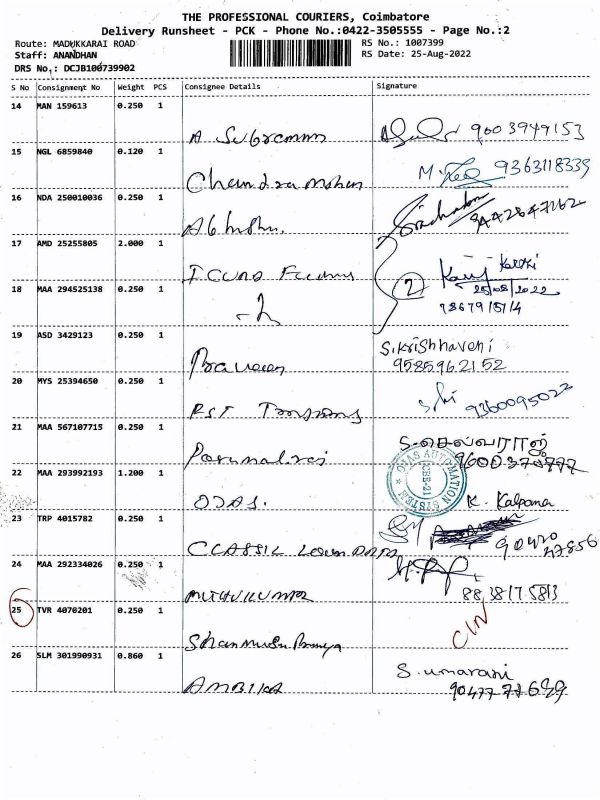 THE PROFESSIONAL COURIERS, Coimbatore
Delivery Runsheet - PCK - Phone No.:0422-3505555 - Page No.:2
Route: MADUKKARAI ROAD
RS No.: 1007399
Staff: ANANDHAN
RS Date: 25-Aug-2022
DRS No.: DCJB100739902
S No Consignment No Weight PCS Consignee Details Signature
14 MAN 159613 0.250 1
A Subramm 9003949153
15 NGL 6859840 0.120 1
Chandra mohan 9363118339
16 NDA 250010036 0.250 1
9442847162
17 AMD 25255805 2.000 1
Karthi
18 MAA 294525138 0.250 1
2 25/08/2022
19 ASD 3429123 0.250 1
Praveen S.Krishhaveni
9585962152
20 MYS 25394650 0.250 1
RST 9360095022
21 MAA 567107715 0.250 1
S-செல்வராஜ்
Perumalraj
22 MAA 293992193 1.200 1
OJAS AUTOMATION SYSTEM
CBE-21
OJAS. K. Kalpana
23 TRP 4015782 0.250 1
CLASSIC 90420
47856
24 MAA 292334026 0.250 1
MUTHUKUMAR 8838175813
25 TVR 4070201 0.250 1
CIN
26 SLM 301990931 0.860 1
S. umarani
AMBIKA